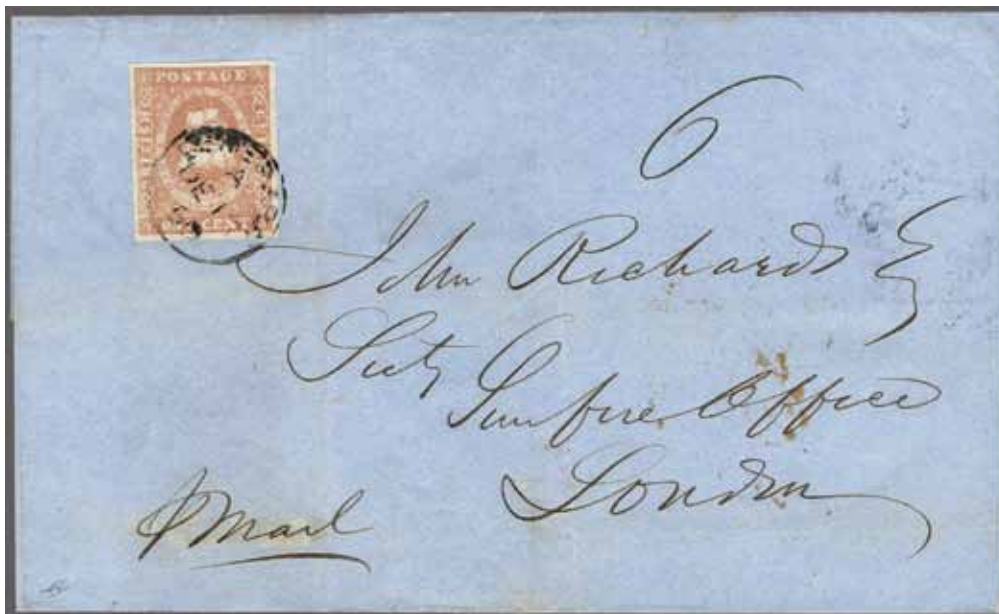 POSTAGE
CENT
6
John Richards
Secty
Sun fire Office
London
Mail